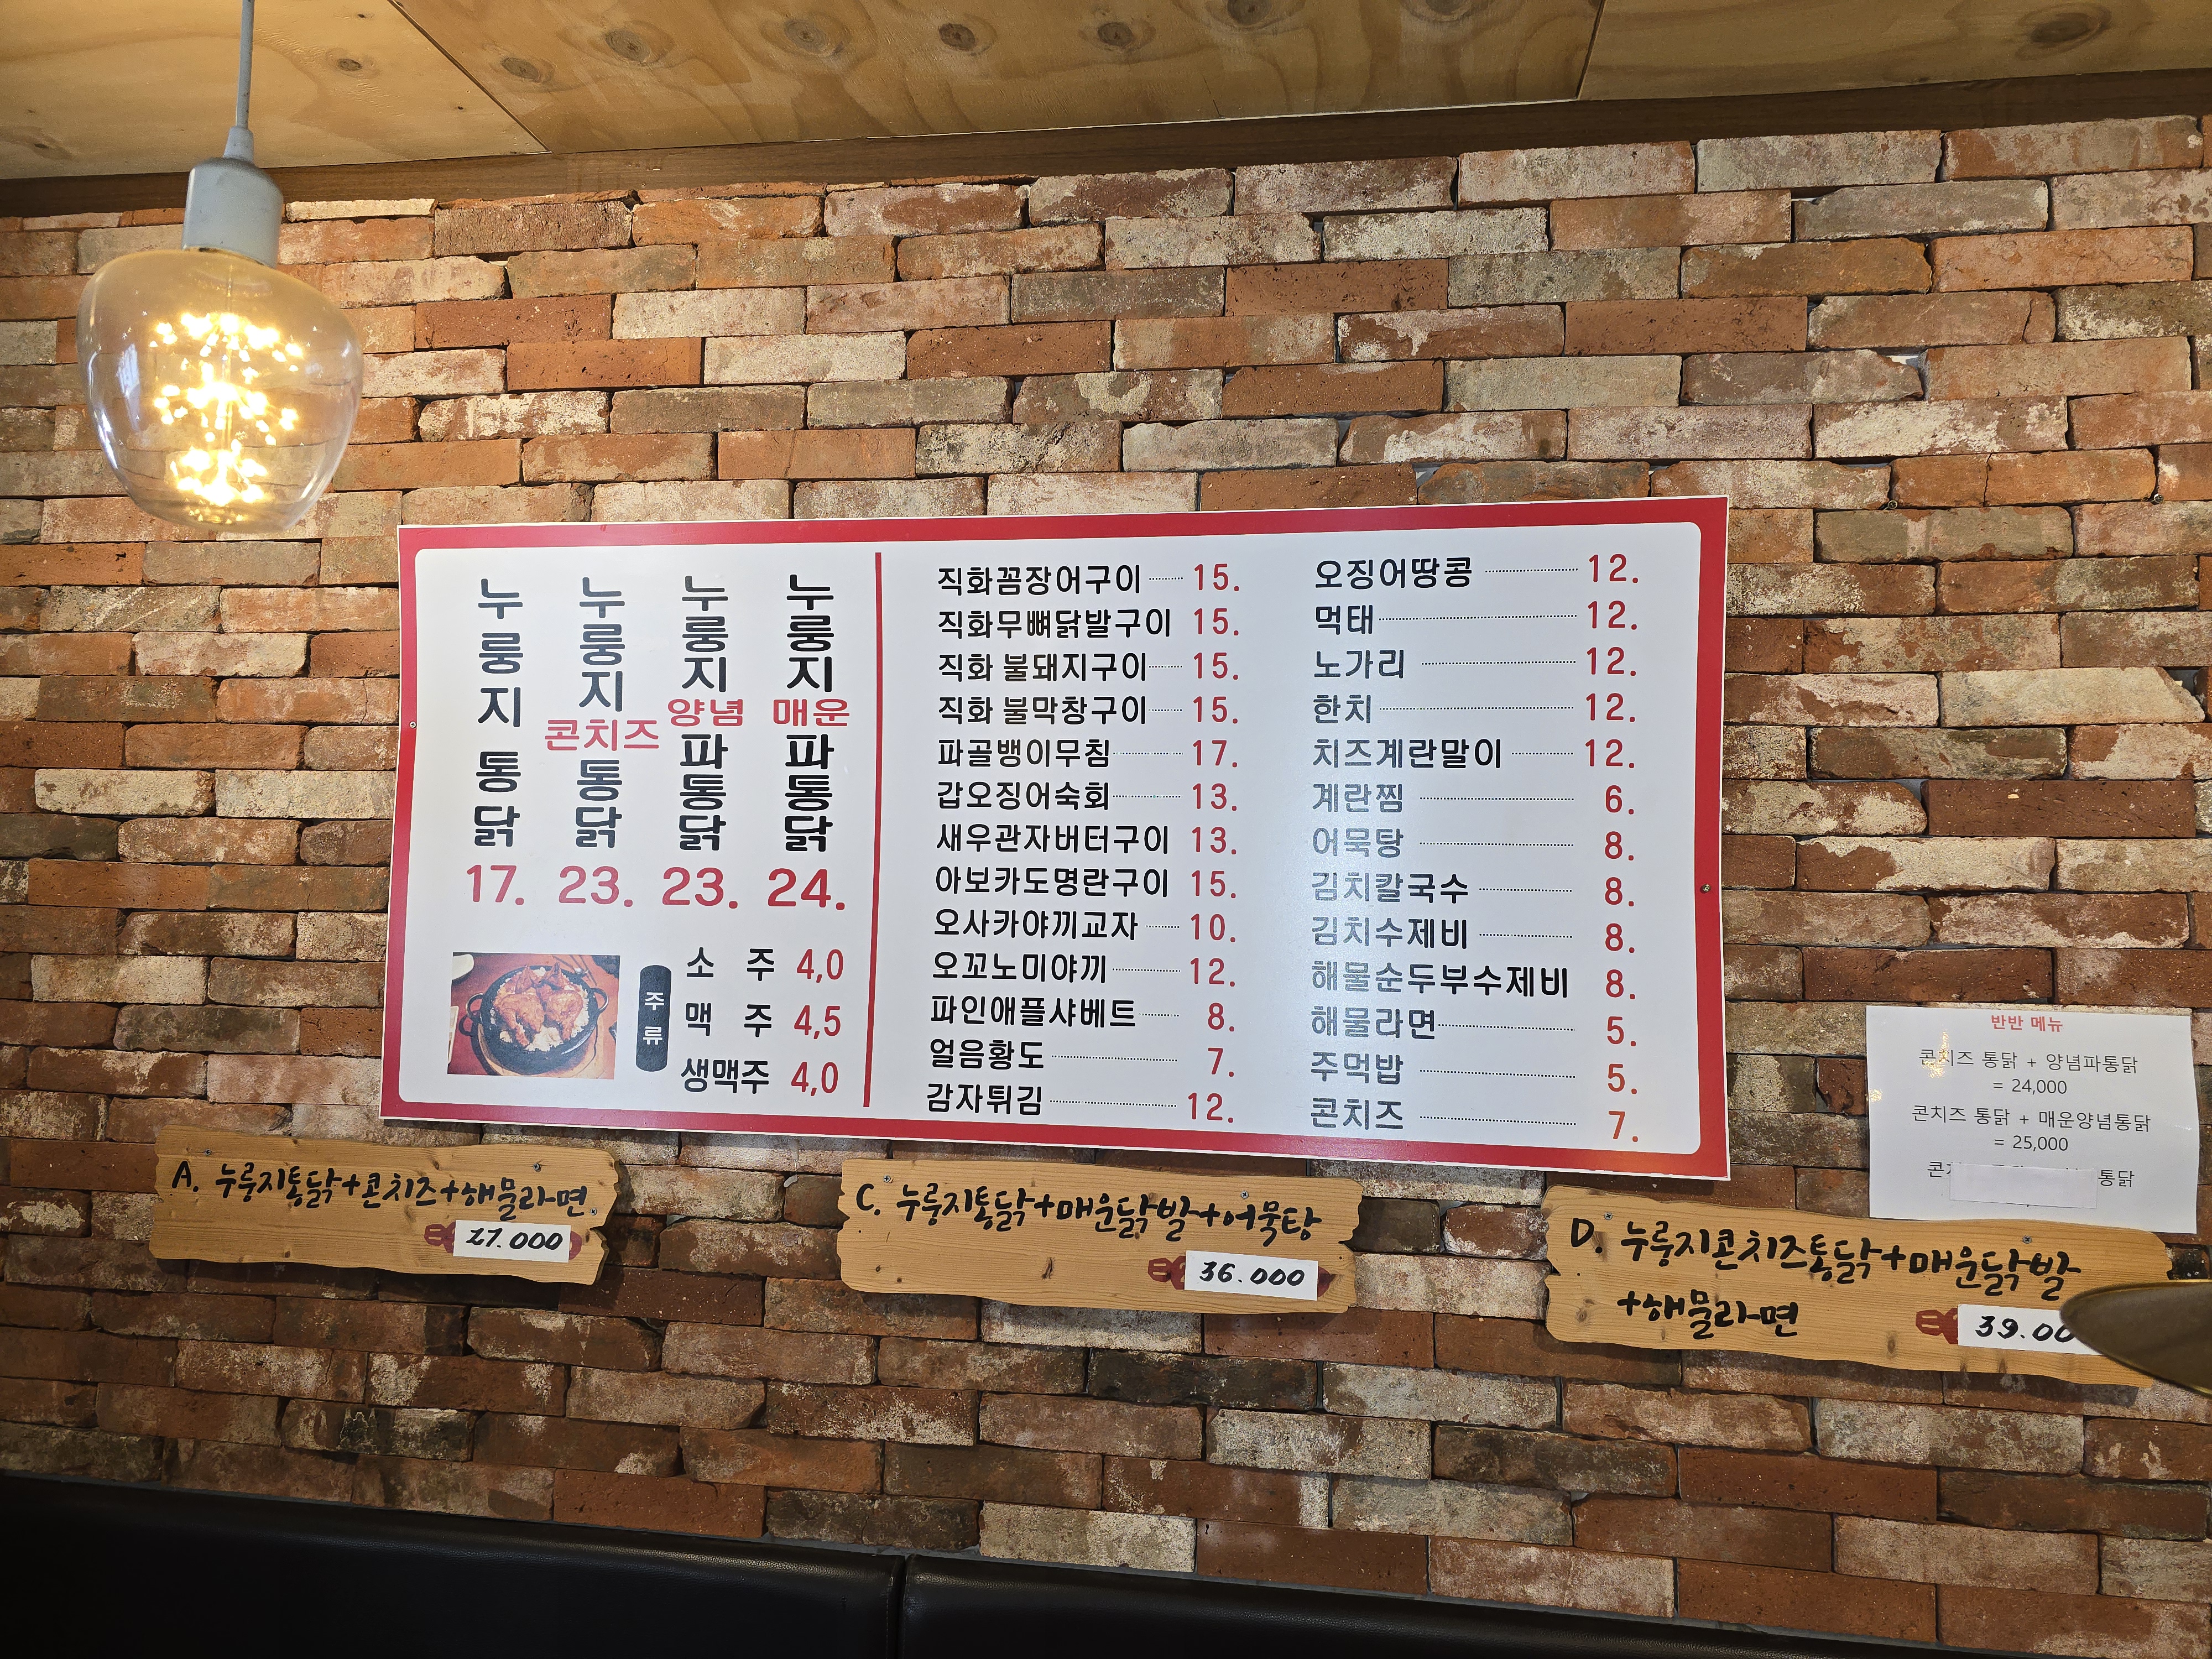 누룽지 통닭 17.
누룽지 콘치즈 통닭 23.
누룽지 양념 파통닭 23.
누룽지 매운 파통닭 24.
주류
소 주 4,0
맥 주 4,5
생맥주 4,0
직화꼼장어구이 15.
직화무뼈닭발구이 15.
직화 불돼지구이 15.
직화 불막창구이 15.
파골뱅이무침 17.
갑오징어숙회 13.
새우관자버터구이 13.
아보카도명란구이 15.
오사카야끼교자 10.
오꼬노미야끼 12.
파인애플샤베트 8.
얼음황도 7.
감자튀김 12.
오징어땅콩 12.
먹태 12.
노가리 12.
한치 12.
치즈계란말이 12.
계란찜 6.
어묵탕 8.
김치칼국수 8.
김치수제비 8.
해물순두부수제비 8.
해물라면 5.
주먹밥 5.
콘치즈 7.
반반 메뉴
콘치즈 통닭 + 양념파통닭
= 24,000
콘치즈 통닭 + 매운양념통닭
= 25,000
통닭
A. 누룽지통닭+콘치즈+해물라면
27.000
C. 누룽지통닭+매운닭발+어묵탕
36.000
D. 누룽지콘치즈통닭+매운닭발
+해물라면